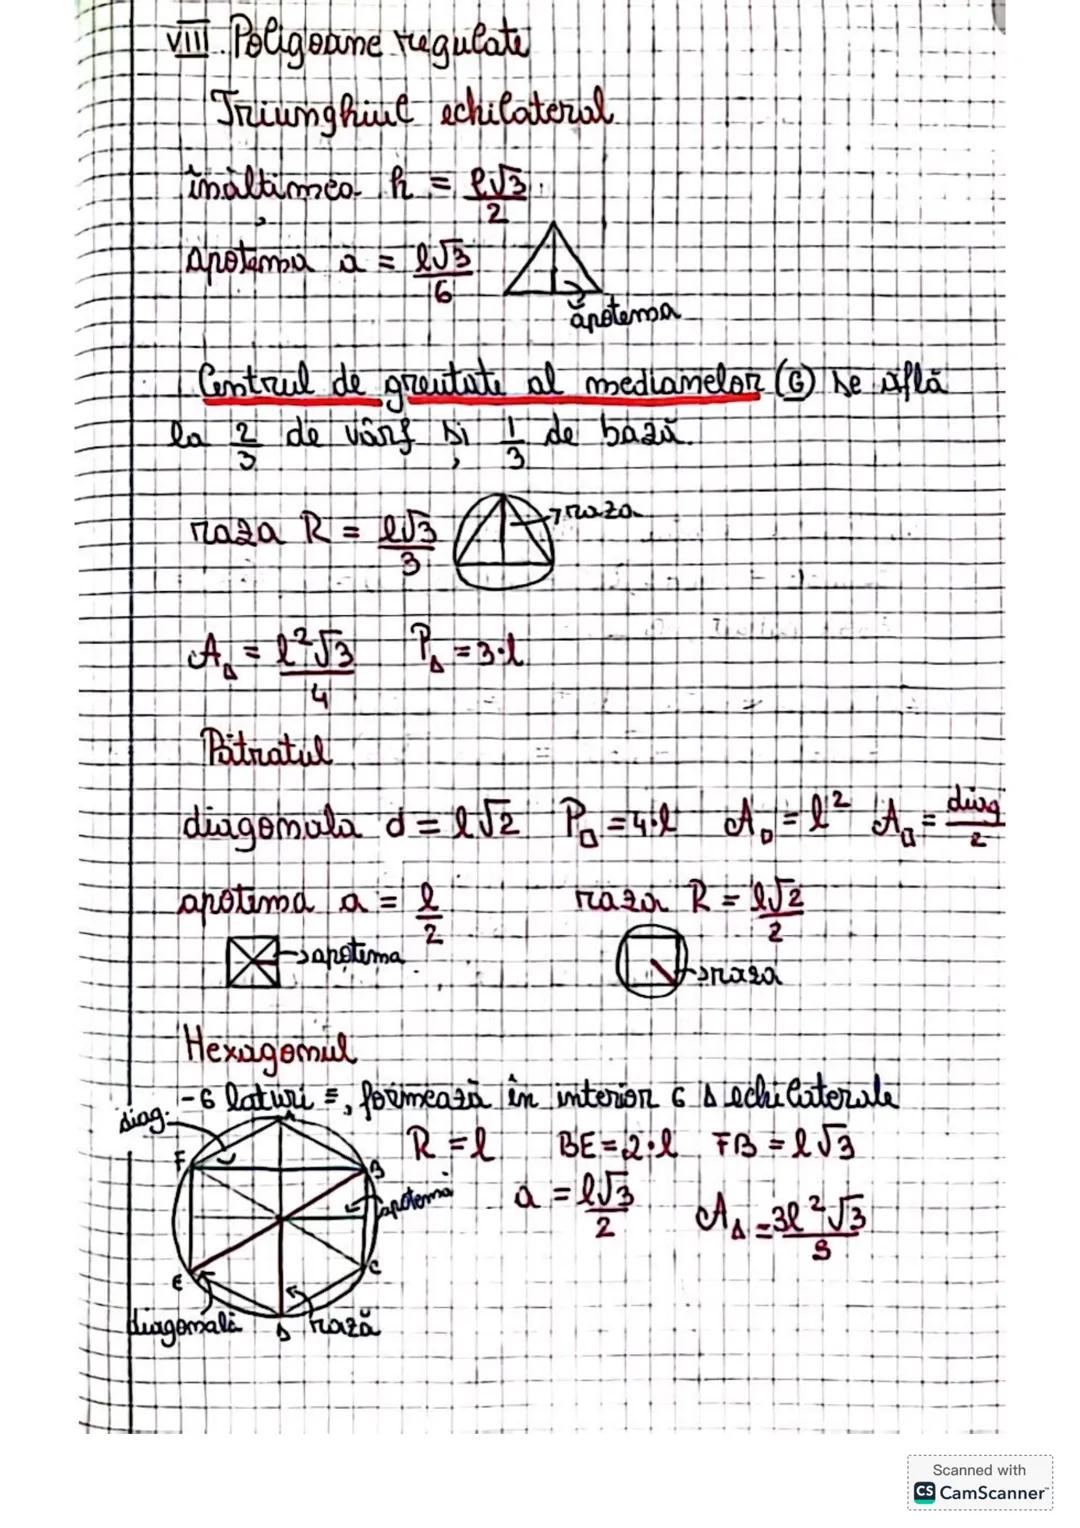 VIII. Poligoane regulate
Triunghiul echilateral
înălțimea h = l√3/2
apotema a = l√3/6
apotema
Centrul de greutate al medianelor (G) se află
la 2/3 de vârf și 1/3 de bază.
raza R = l√3/3
raza
A△ = l²√3/4 P△ = 3·l
Pătratul
diagonala d = l√2 P□ = 4·l A□ = l² A□ = diag/2
apotema a = l/2 raza R = l√2/2
apotema
raza
Hexagonul
- 6 laturi ≡, formează în interior 6 △ echilaterale
diag.
A
R = l BE = 2·l FB = l√3
F
B
apotema
a = l√3/2 A△ = 3l²√3/
E
C
diagonală D rază
Scanned with
CS CamScanner